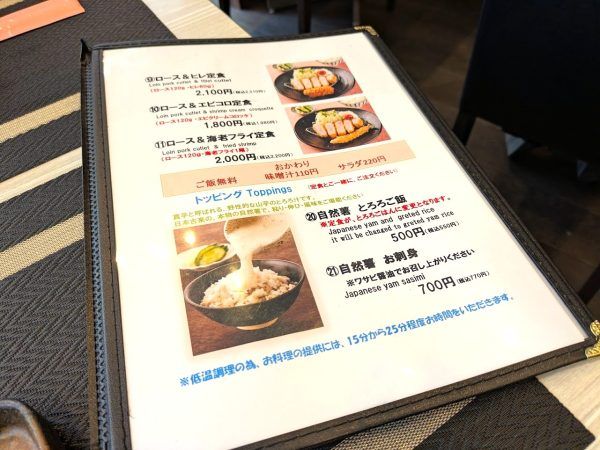 ⑨ロース＆ヒレ定食
Loin pork cutlet & fillet cutlet
(ロース120g・ヒレ80g)
2,100円(税込2,310円)
⑩ロース＆エビコロ定食
Loin pork cutlet & shrimp cream croquette
(ロース120g・エビクリームコロッケ)
1,800円(税込1,980円)
⑪ロース＆海老フライ定食
Loin pork cutlet & fried shrimp
(ロース120g・海老フライ1尾)
2,000円(税込2,200円)
おかわり
ご飯無料 味噌汁110円 サラダ220円
トッピング Toppings (定食とご一緒に、ご注文ください)
真芋と呼ばれる、野性的な山芋のとろろ汁です。
日本古来の、本物の自然薯で、粘り・伸び・風味をご堪能ください
⑳自然薯 とろろご飯
※定食が、とろろごはんに変更となります。
Japanese yam and greted rice
it will be changed to greted yam rice
500円(税込550円)
㉑自然薯 お刺身
※ワサビ醤油でお召し上がりください
Japanese yam sasimi
700円(税込770円)
※低温調理の為、お料理の提供には、15分から25分程度お時間をいただきます。